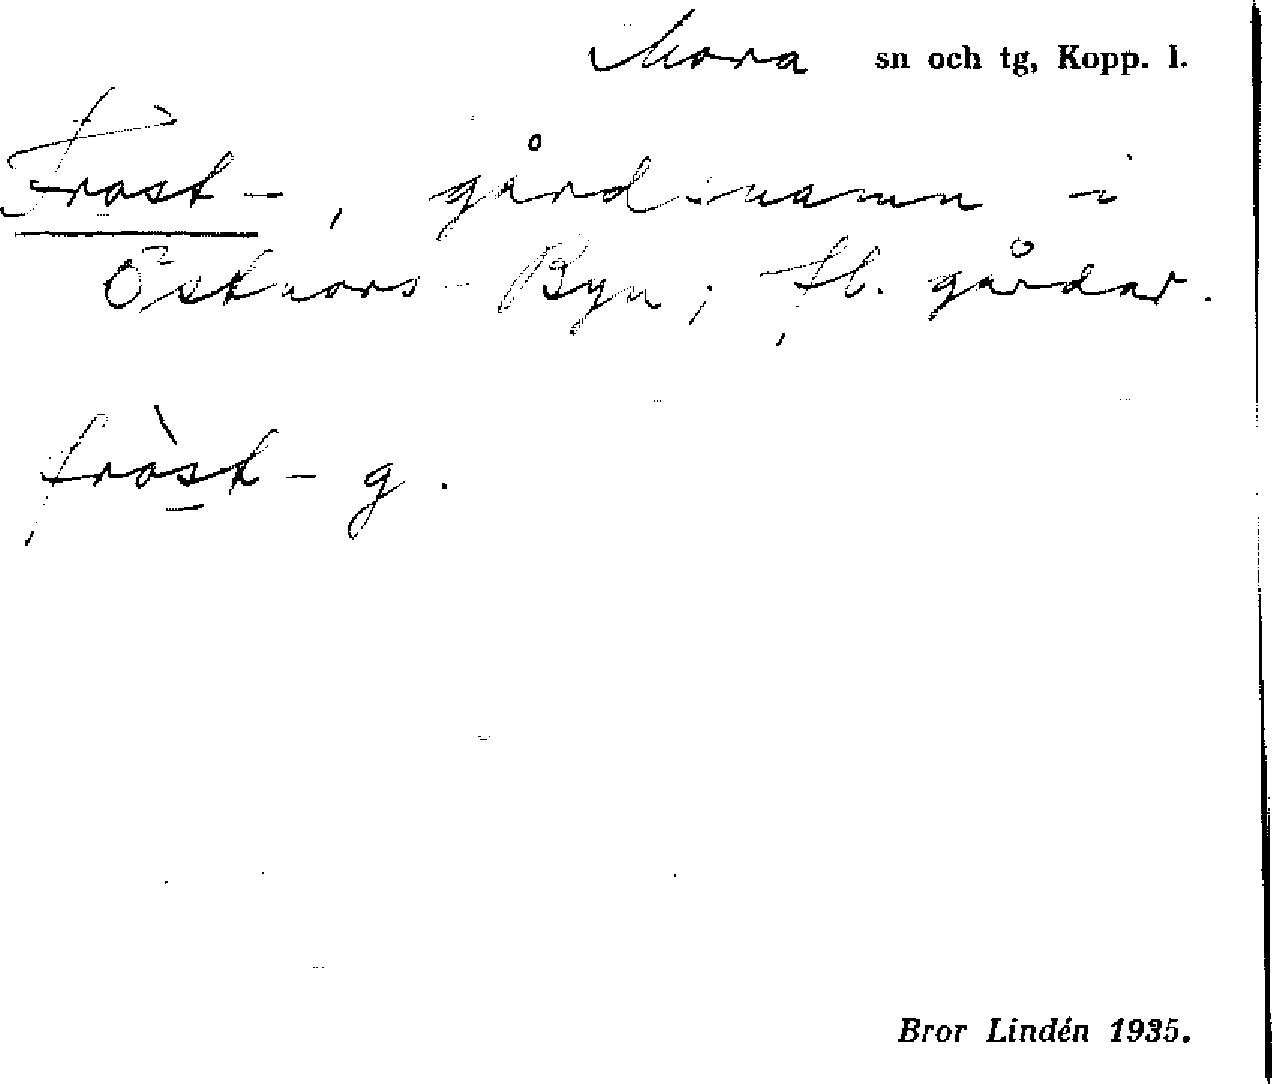 Mora sn och tg, Kopp. l.
Frost-, gårdsnamn i
Östnors-Byn; fl. gårdar.
fròst- g.
Bror Lindén 1935.